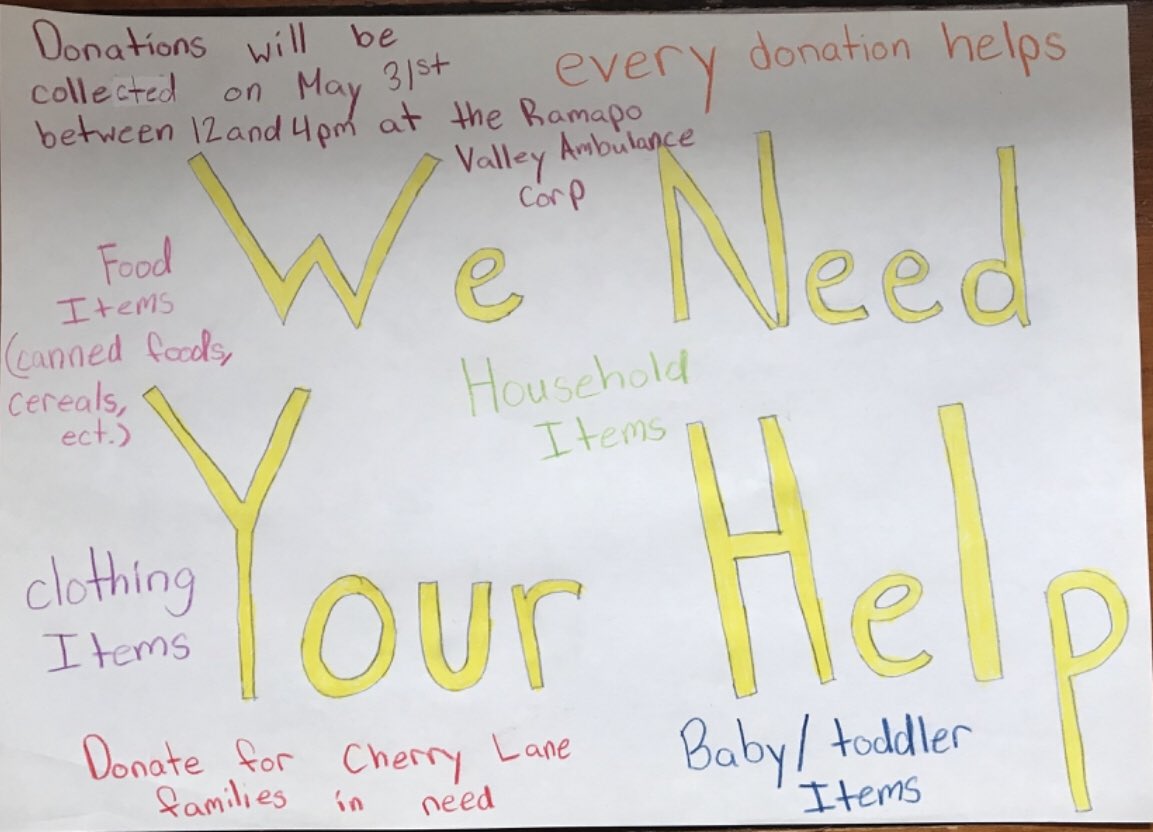 Donations will be
collected on May 31st
between 12 and 4pm at the Ramapo
Valley Ambulance
Corp
every donation helps
We Need
Food
Items
(canned foods,
cereals,
ect.)
Household
Items
Your Help
clothing
Items
Donate for Cherry Lane
families in need
Baby/toddler
Items